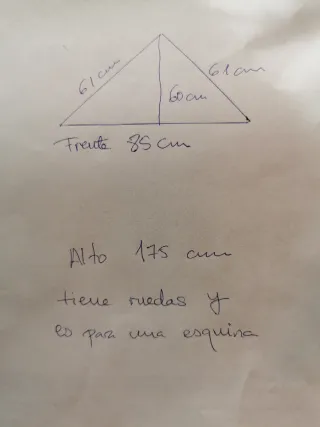 61 cm
61 cm
60 cm
Frente 85 cm
Alto 175 cm
tiene ruedas y
es para una esquina